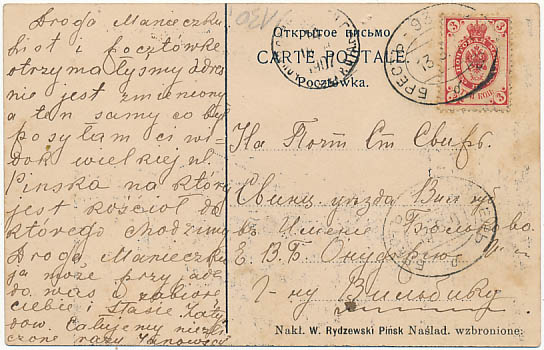 Droga Manieczku
list i pocztówkę
otrzymałyśmy adres
nie jest zmieniony
a ten samy co był
posyłam ci wi-
dok wielkiej ul.
Pinska na który
jest kościoł do
którego chodzimy
Droga Manieczku
ja może przyjadę
do was i zabiorę
ciebie i Stasię
Całujemy niezli-
czone razy Janowscy
1430
Открытое письмо
CARTE POSTALE.
Pocztówka.
БРЕСТЪ
3
На Почт Ст Свирь.
Свенц. уезда Вил губ
въ Имение
Е. В. Б.
Г-ну
Nakł. W. Rydzewski Pińsk Naślad. wzbronione: